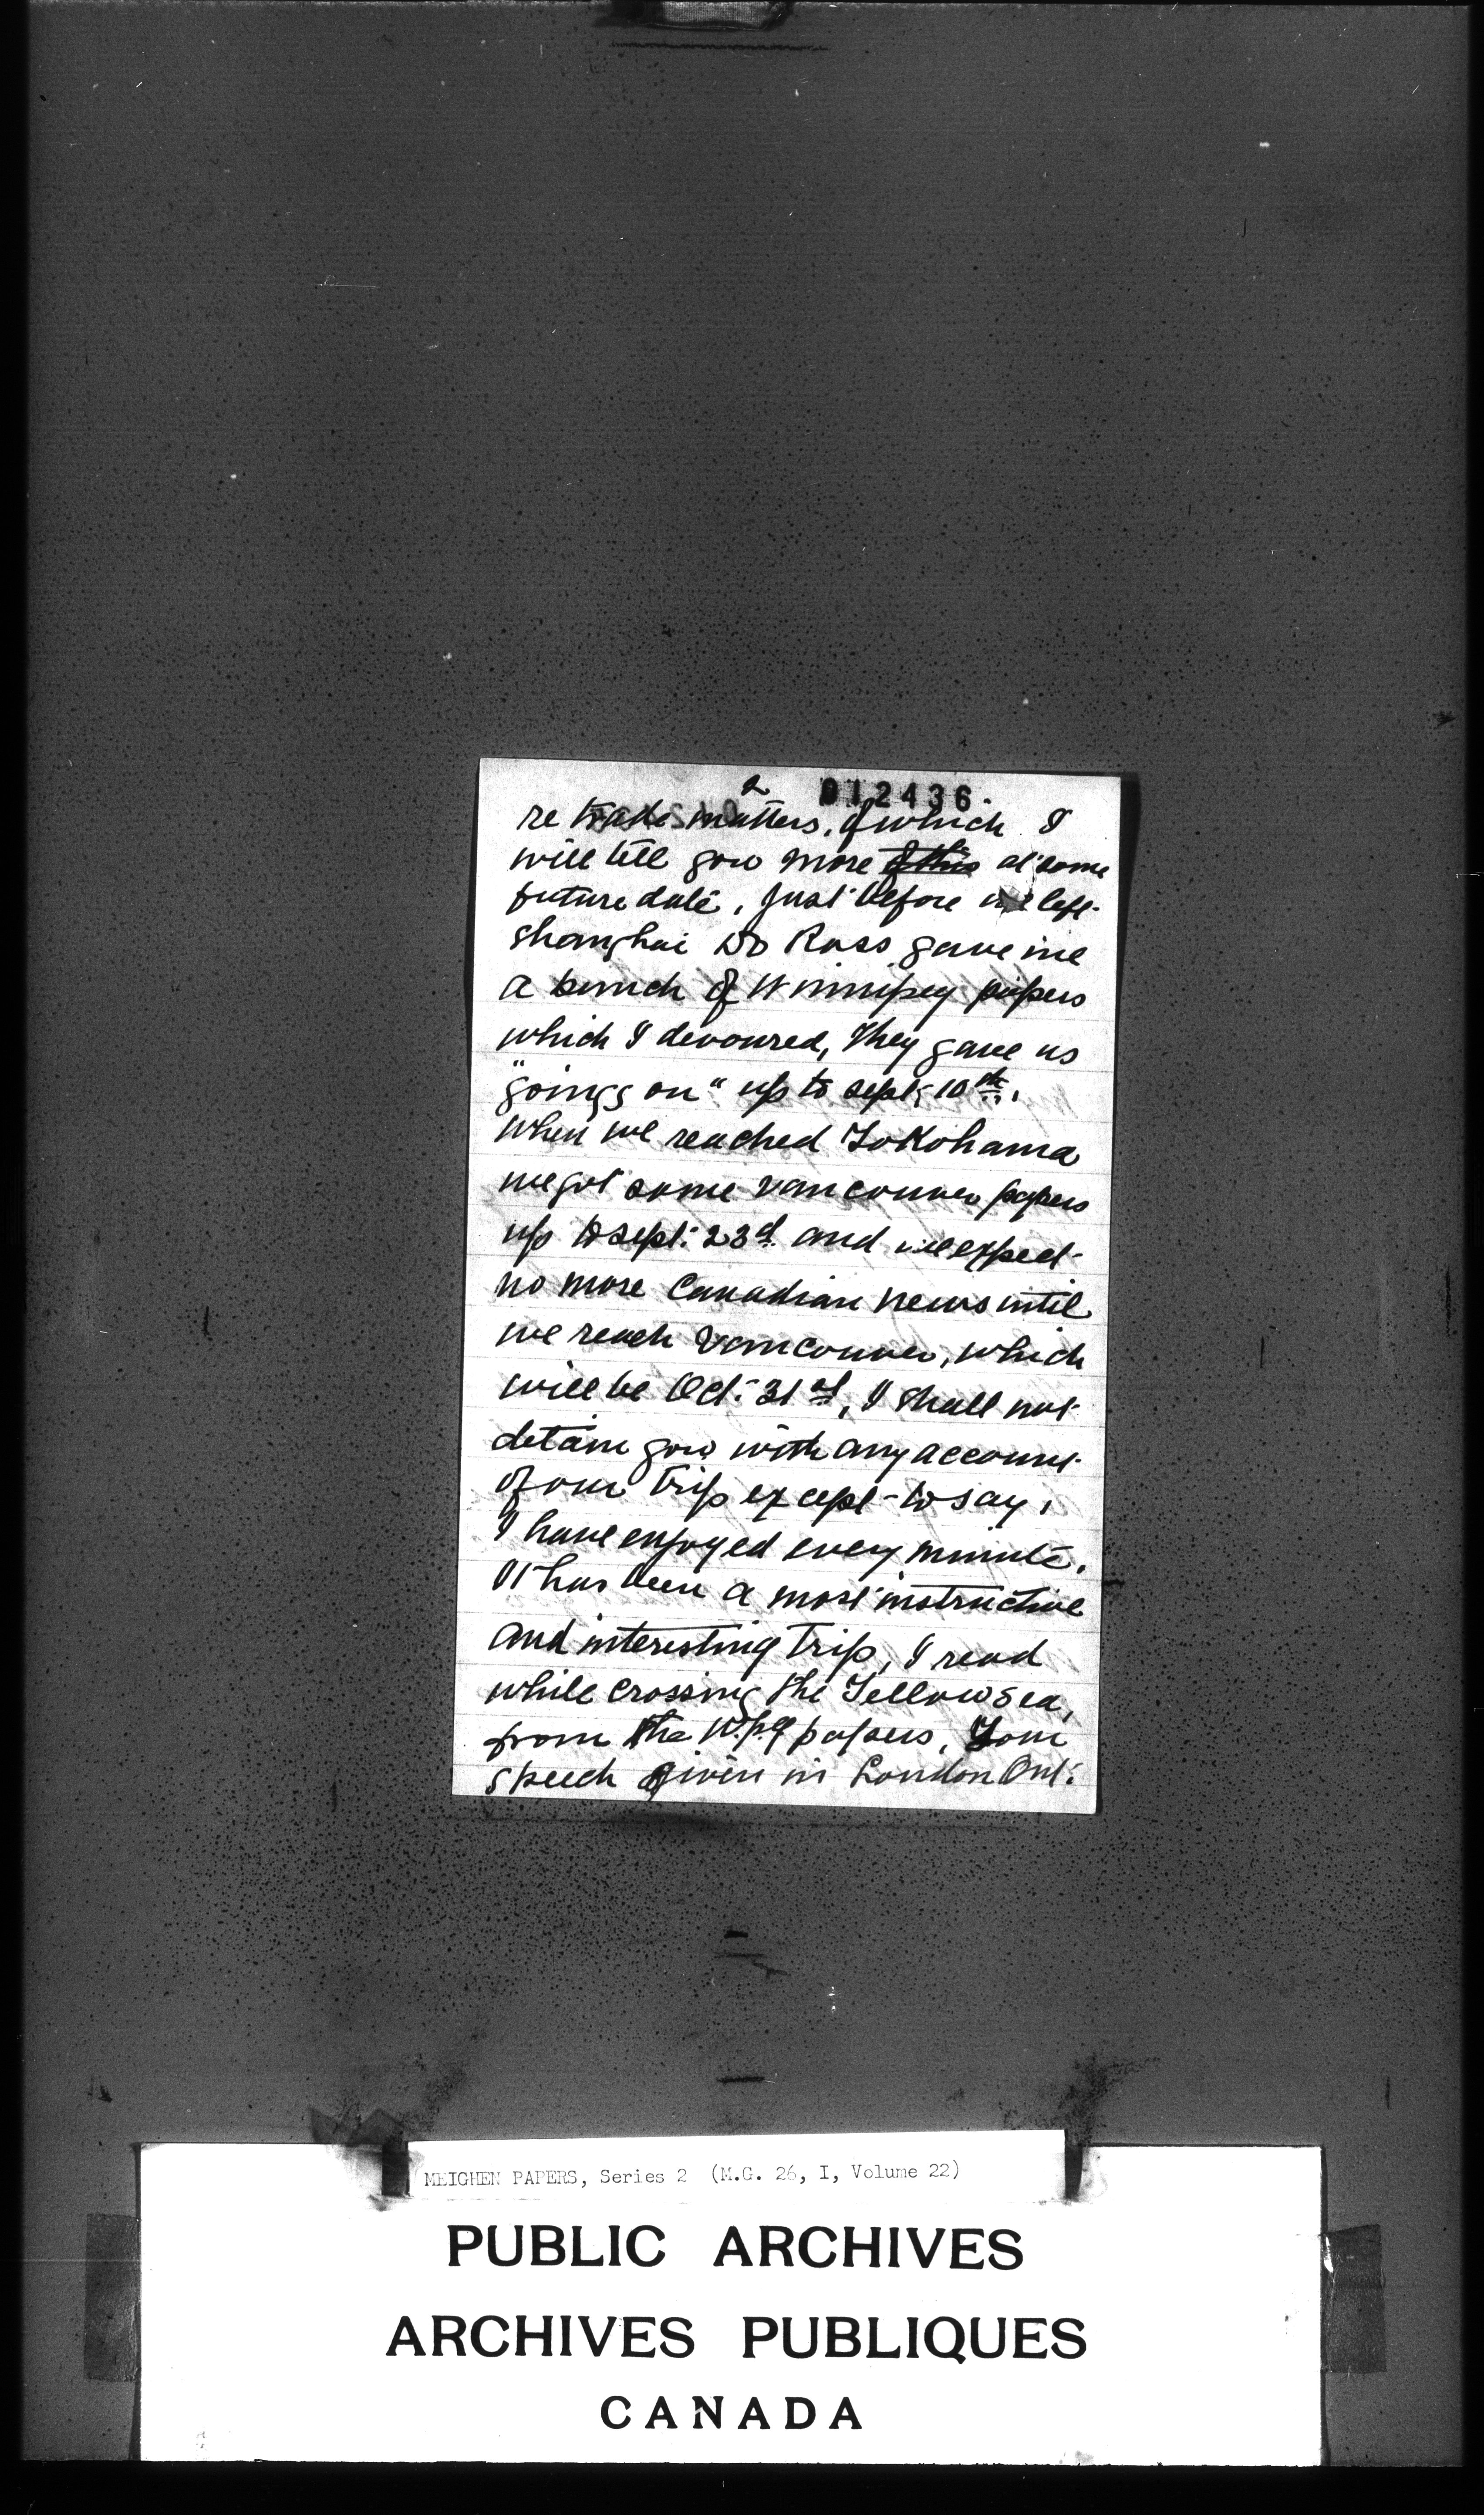 2
012436
re trade matters, of which I
will tell you more of this at some
future date, Just before we left
Shanghai Dr Ross gave me
a bunch of Winnipeg papers
which I devoured, They gave us
"goings on" up to Sept; 10th,
When we reached Yokohama
we got some Vancouver papers
up to Sept: 23d and we expect
no more Canadian news until
we reach Vancouver, which
will be Oct: 31st, I shall not
detain you with any account
of our trip except to say,
I have enjoyed every minute,
It has been a most instructive
and interesting trip, I read
while crossing the Yellow Sea,
from the Wpg papers, Your
speech given in London Ont:
MEIGHEN PAPERS, Series 2 (M.G. 26, I, Volume 22)
PUBLIC ARCHIVES
ARCHIVES PUBLIQUES
CANADA